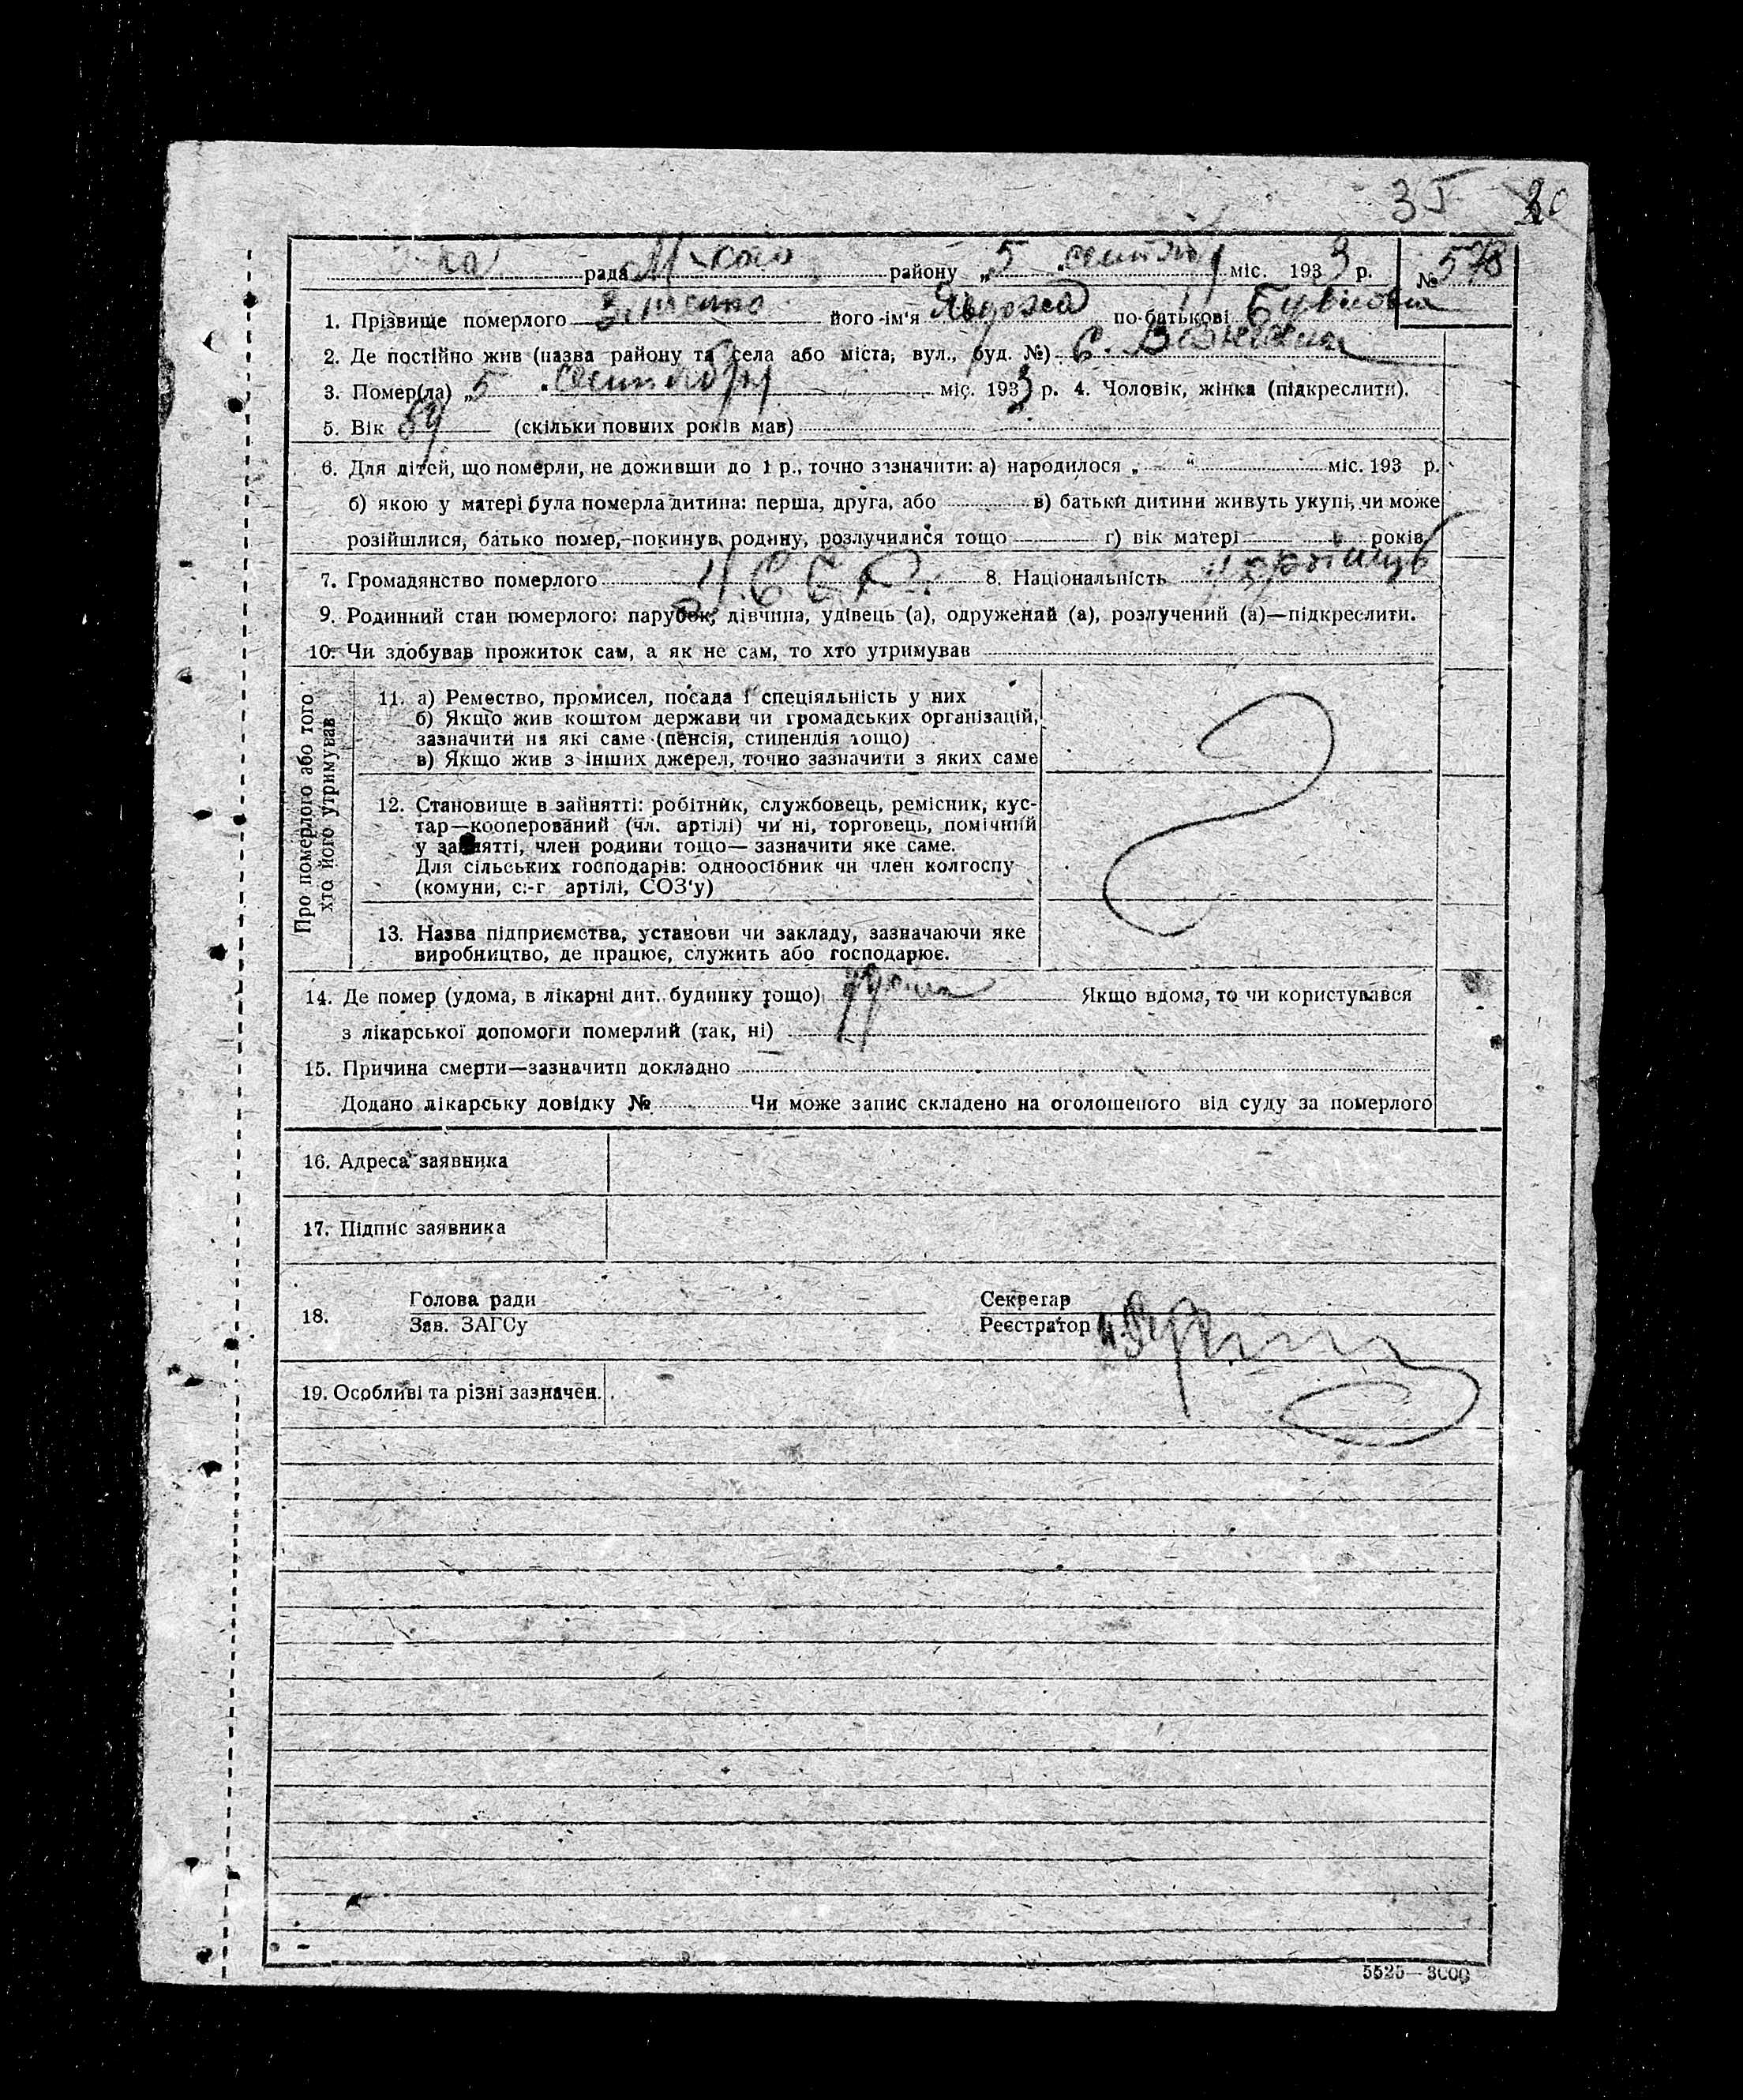 35
рада М-кого району „5 " сентября міс. 1933 р. № 578
1. Прізвище померлого його ім'я Явдоха по батькові
2. Де постійно жив (назва району та села або міста, вул., буд. №) С.
3. Помер(ла) „5 " сентября міс. 1933 р. 4. Чоловік, жінка (підкреслити).
5. Вік 59 (скільки повних років мав)
6. Для дітей, що померли, не доживши до 1 р., точно зазначити: а) народилося „ " міс. 193 р.
б) якою у матері була померла дитина: перша, друга, або в) батьки дитини живуть укупі, чи може
розійшлися, батько помер, покинув, родину, розлучилися тощо г) вік матері років
7. Громадянство померлого УССР. 8. Національність
9. Родинний стан померлого: парубок, дівчина, удівець (а), одружений (а), розлучений (а)—підкреслити.
10. Чи здобував прожиток сам, а як не сам, то хто утримував
Про померлого або того
хто його утримував
11. а) Ремество, промисел, посада і спеціяльність у них
б) Якщо жив коштом держави чи громадських організацій,
зазначити на які саме (пенсія, стипендія тощо)
в) Якщо жив з інших джерел, точно зазначити з яких саме
12. Становище в зайнятті: робітник, службовець, ремісник, кус-
тар—кооперований (чл. артілі) чи ні, торговець, помічний
у зайнятті, член родини тощо— зазначити яке саме.
Для сільських господарів: одноосібник чи член колгоспу
(комуни, с.-г. артілі, СОЗ'у)
13. Назва підприємства, установи чи закладу, зазначаючи яке
виробництво, де працює, служить або господарює.
14. Де помер (удома, в лікарні дит. будинку тощо) Якщо вдома, то чи користувався
з лікарської допомоги померлий (так, ні)
15. Причина смерти—зазначити докладно
Додано лікарську довідку № Чи може запис складено на оголошеного від суду за померлого
16. Адреса заявника
17. Підпис заявника
18. Голова ради Секретар
Зав. ЗАГСу Реєстратор
19. Особливі та різні зазначен.
5525—3000